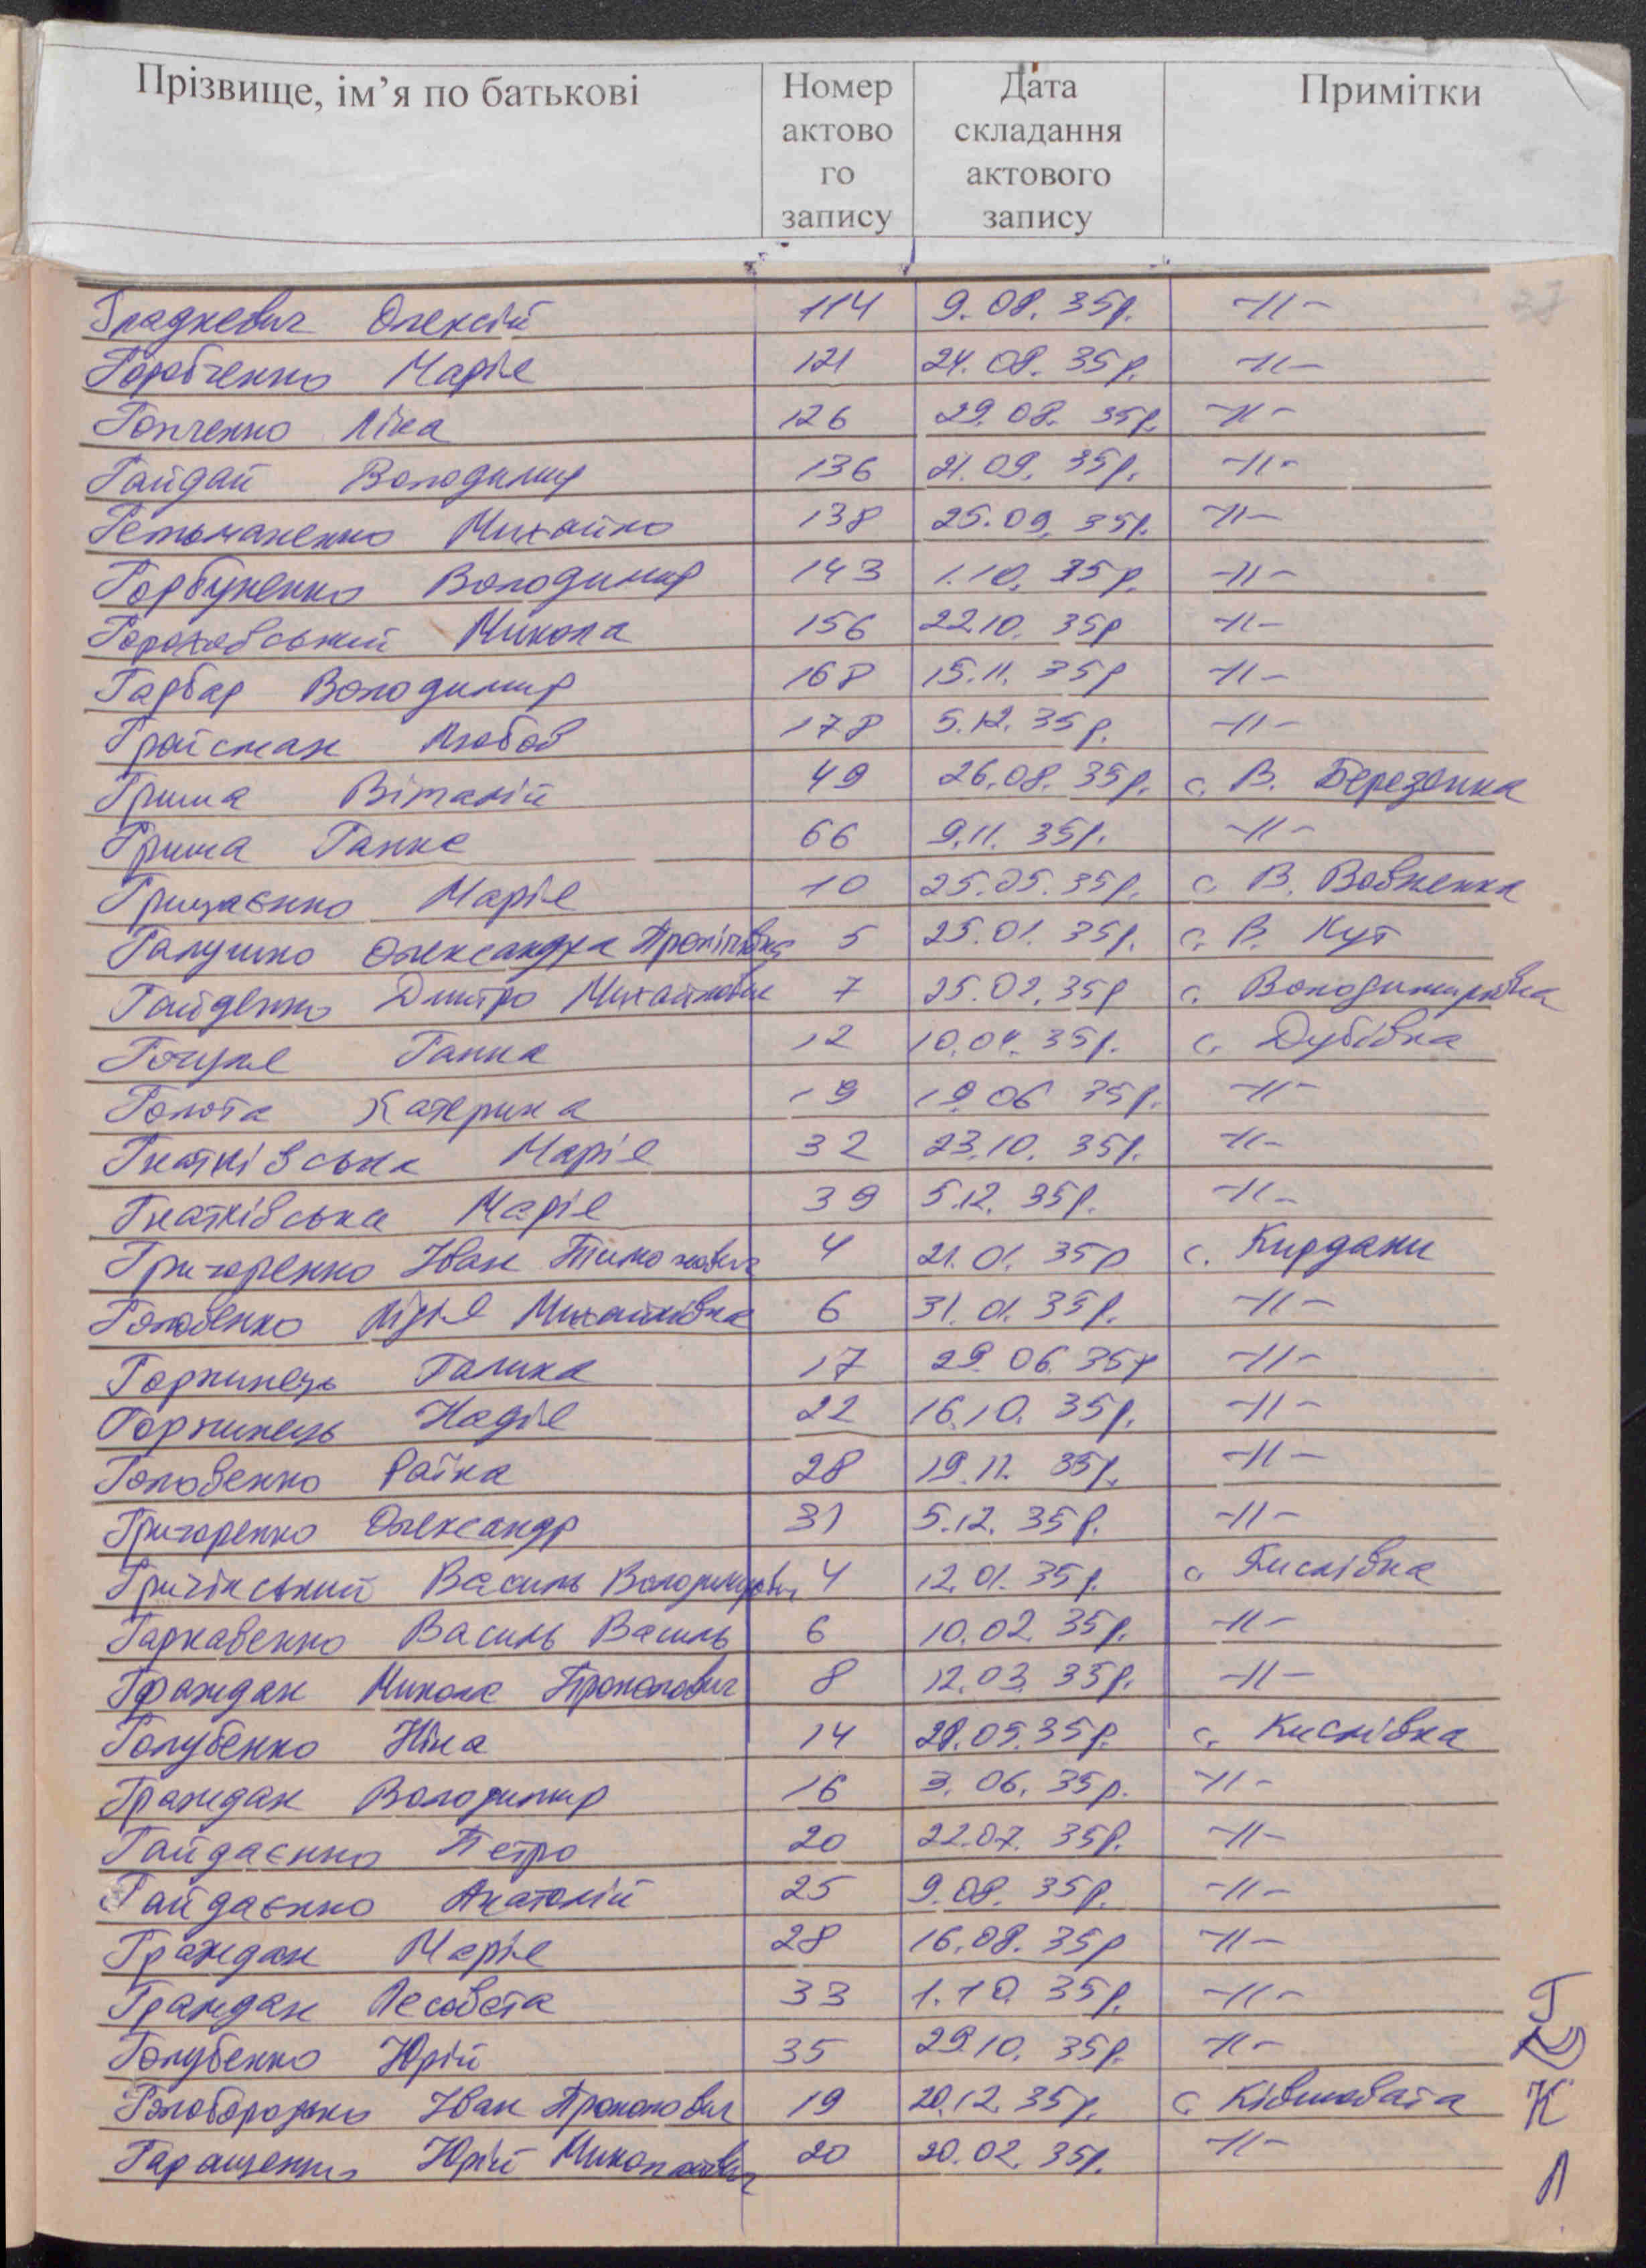 Прізвище, ім’я по батькові Номер актово го запису Дата складання актового запису Примітки
Гладкевич Олексій 114 9.08.35р. -11-
Марія 121 24.08.35р. -11-
Гопченко Ліна 126 29.08.35р. -11-
Гайдай Володимир 136 21.09.35р. -11-
Гетьманенко Михайло 138 25.09.35р. -11-
Горбуненко Володимир 143 1.10.35р. -11-
Гороховський Микола 156 22.10.35р -11-
Гарбар Володимир 168 15.11.35р -11-
Гройсман Любов 178 5.12.35р. -11-
Гриша Віталій 49 26.08.35р. с. В. Березянка
Гриша Ганна 66 9.11.35р. -11-
Грищаєнко Марія 10 25.05.35р. с. В. Вовнянка
Галушко Олександра 5 25.01.35р. с. В. Кут
Гайденко Дмитро Михайлович 7 25.02.35р с. Володимирівка
Гоцуля Ганна 12 10.04.35р. с. Дубівка
Голота Катерина 19 19.06 35р. -11-
Гнатківська Марія 32 23.10.35р. -11-
Гнатківська Марія 39 5.12.35р. -11-
Григоренко Іван Тимохович 4 21.01.35р с. Кирдани
Головенко Лідія Михайлівна 6 31.01.35р. -11-
Горкинець Галина 17 29.06.35р -11-
Горкинець Надія 22 16.10.35р. -11-
Головенко Раїна 28 19.11.35р. -11-
Григоренко Олександр 31 5.12.35р. -11-
Гричінський Василь Володимирович 4 12.01.35р. с. Кислівка
Гаркавенко Василь Василь 6 10.02.35р. -11-
Граждан Микола Прокопович 8 12.03.35р. -11-
Голубенко Ніна 14 28.05.35р. с. Кислівка
Граждан Володимир 16 3.06.35р. -11-
Гайдаєнко Петро 20 22.07.35р. -11-
Гайдаєнко Анатолій 25 9.08.35р. -11-
Граждан Марія 28 16.08.35р -11-
Граждан Лесовета 33 1.10.35р. -11-
Голубенко Юрій 35 29.10.35р. -11-
Голобородько Іван Прокопович 19 20.12.35р. с. Ківшовата
Гаращенко Юрій Миколайович 20 20.02.35р. -11-
Г
К
Л